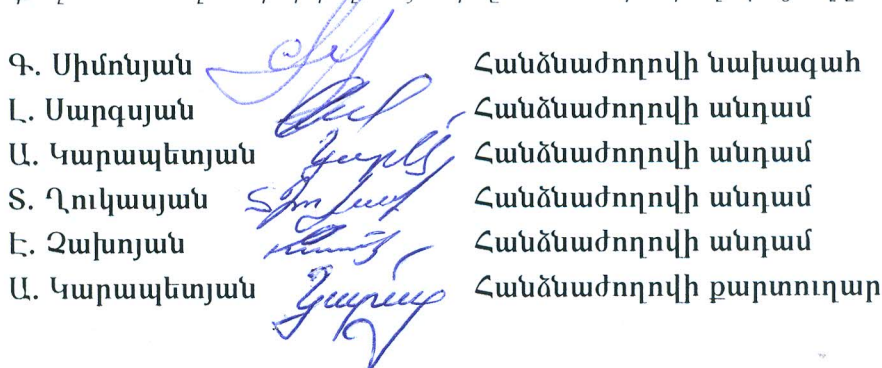 Գ. Սիմոնյան Հանձնաժողովի նախագահ
Լ. Սարգսյան Հանձնաժողովի անդամ
Ա. Կարապետյան Հանձնաժողովի անդամ
Տ. Ղուկասյան Հանձնաժողովի անդամ
Է. Չախոյան Հանձնաժողովի անդամ
Ա. Կարապետյան Հանձնաժողովի քարտուղար